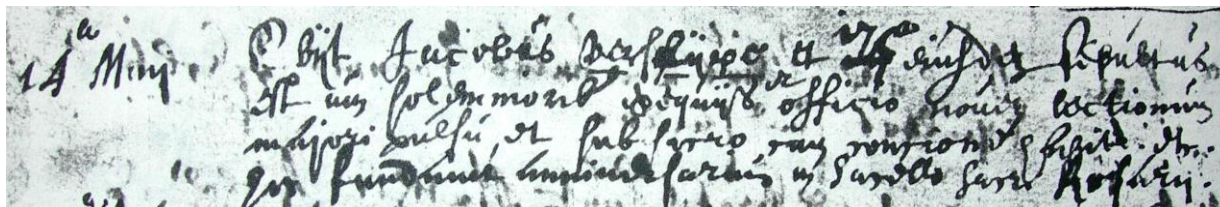 14a Maij Obijt Jacobus Verschijpe et 17a eiusdem sepultus
est cum solemniorib exequijs et officio novem lectionum
majori pulsu, et sub sacro cum concione habita. etc.
hic fundavit anniversarium in sacello sacri Rosarii.